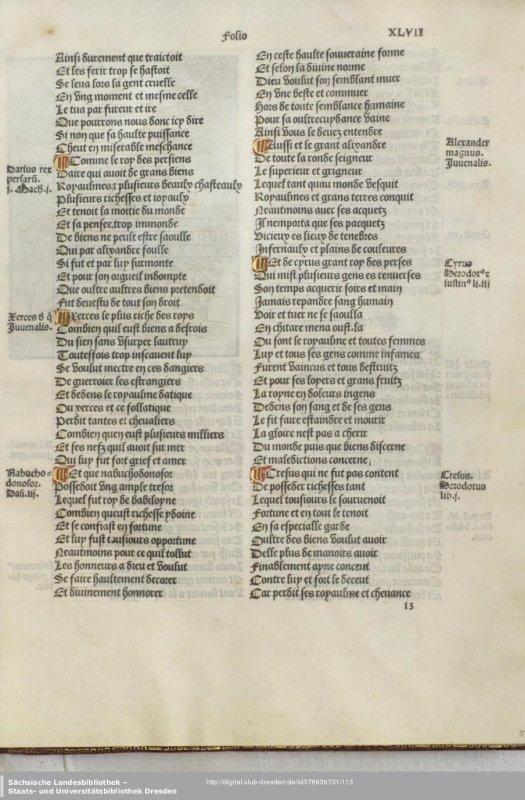 Folio
XLVII
Ainsi durement que traictoit
Et les ferir trop se hastoit
Se leua lors la gent cruelle
En vng moment et mesme celle
Le tua par fureur et ire
Que pourrons nous donc icy dire
Si non que sa haulte puissance
Cheut en miserable meschance
Comme le roy des persiens
Daire qui auoit de grans biens
Royaulmes ⁊ plusieurs beaulx chasteaulx
Plusieurs richesses et ioyaulx
Et tenoit la moitie du monde
Et sa pensee trop immonde
De biens ne peult estre saoulle
Qui par alixandre foulle
Si fut et par luy surmonte
Et pour son orgueil indompte
Que oultre aultres biens pretendoit
Fut deuestu de tout son droit
Xerces le plus riche des roys
Combien quil eust biens a desrois
Du sien sans vsurper lautruy
Touteffois trop inscauent luy
Se voulut mectre en ces dangiers
De guerroier les estrangiers
Et dedens le royaulme datique
Ou xerces et ce follatique
Perdit tantes et cheualiers
Combien quen eust plusieurs milliers
Et ses nefz quil auoit sur mer
Qui luy fut fort grief et amer
Et que nabuchodonosor
Possedoit vng ample tresor
Lequel fut roy de babiloyne
Combien queust richesse ydoine
Et se confiast en fortune
Et luy fust tousiours opportune
Neautmoins pour ce quil tollut
Les honneurs a dieu et voulut
Se faire haultement decorer
Et diuinement honnorer
Darius rex
persarū.
i. Mach. i.
Xerces vt q̄
Juuenalis.
Nabucho⸗
donosor.
Dañ. iij.
En ceste haulte souueraine forme
Et selon la diuine norme
Dieu voulut son semblant muer
En vne beste et commuer
Hors de toute semblance humaine
Pour sa oultrecuydance vaine
Ainsi vous le deuez entendre
Aussi et le grant alixandre
De toute la ronde seigneur
Le superieur et grigneur
Lequel tant quau monde vesquit
Royaulmes et grans terres conquit
Neautmoins auec ses acquetz
Il nemporta que ses pacquetz
Vicieux es lieux de tenebres
Infernaulx et plains de couleures
Et de cyrus grant roy des perses
Qui mist plusieurs gens es renuerses
Son temps acquerir soirs et main
Jamais repandre sang humain
Voir et tuer ne se saoulla
En chitare mena oust la
Ou sont le royaulme et toutes femmes
Luy et tous ses gens comme infames
Furent vaincus et tous destruitz
Et pour ses loyers et grans fruitz
La royne en doleurs ingens
Dedens son sang et de ses gens
Le fit faire estaindre et mourir
La gloire nest pas a cherir
Du monde puis que biens discerne
Et maledictions concerne,
Cresus qui ne fut pas content
De posseder richesses tant
Lequel tousiours le souruenoit
Fortune et en tout le tenoit
En sa especialle garde
Oultre des biens voulut auoir
Delle plus de manoirs auoir
Finablement ayne conceut
Contre luy et fort le deceut
Car perdit ses royaulme et cheuance
Alexander
magnus.
Juuenalis.
Cyrus
Herodotꝰ ⁊
iustinꝰ li. iij
Cresus.
Herodorus
lib. j.
i3
Sächsische Landesbibliothek –
Staats- und Universitätsbibliothek Dresden
http://digital.slub-dresden.de/id376636731/113